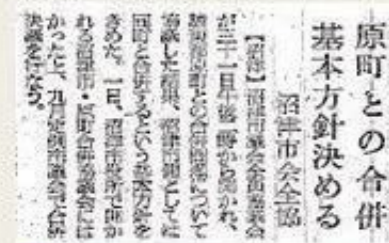 原町との合併
基本方針決める
沼津市会全協
【沼津】沼津市議会全員協議会
が三十一日午後一時から開かれ、
協議した結果、沼津市側としては
同町と合併するという基本方針を
きめた。一日、沼津市役所で開か
れる沼津市・原町合併協議会には
かったうえ、九月定例市議会で合併
決議を行なう。